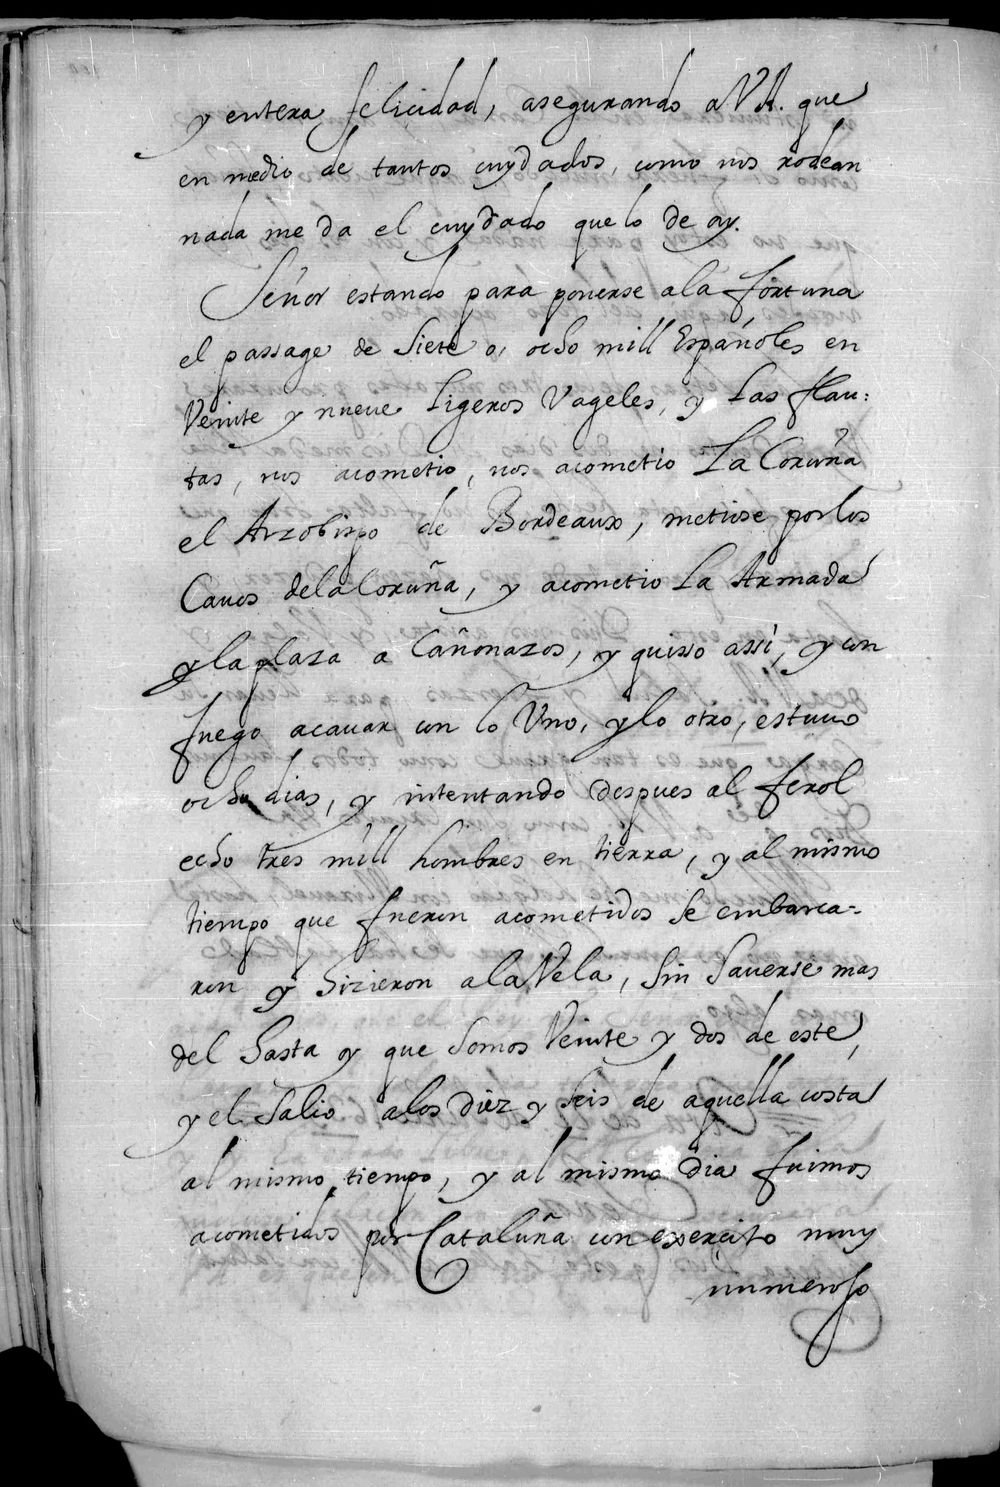 y entera felicidad, asegurando a V.A. que
en medio de tantos cuydados, como nos rodean
nada me da el cuydado que lo de ay.
Señor estando para ponerse ala fortuna
el passage de siete o, ocho mill Españoles en
Veinte y nueve Ligeros Vageles, y Las flau:
tas, nos acometio, nos acometio La Coruña
el Arzobispo de Bordeaux, metiose por los
Cavos dela Coruña, y acometio La Armada
y la plaza a Cañonazos, y quisso assi, y con
fuego acavar con lo Vno, y lo otro, estuuo
ocho dias, y intentando despues al ferol
echo tres mill hombres en tierra, y al mismo
tiempo que fueron acometidos se embarca-
ron y hizieron a la Vela, sin saverse mas
del hasta oy que somos Veinte y dos de este,
y el salio alos diez y seis de aquella costa
al mismo tiempo, y al mismo dia fuimos
acometidos por Cataluña con exercito muy
numeroso